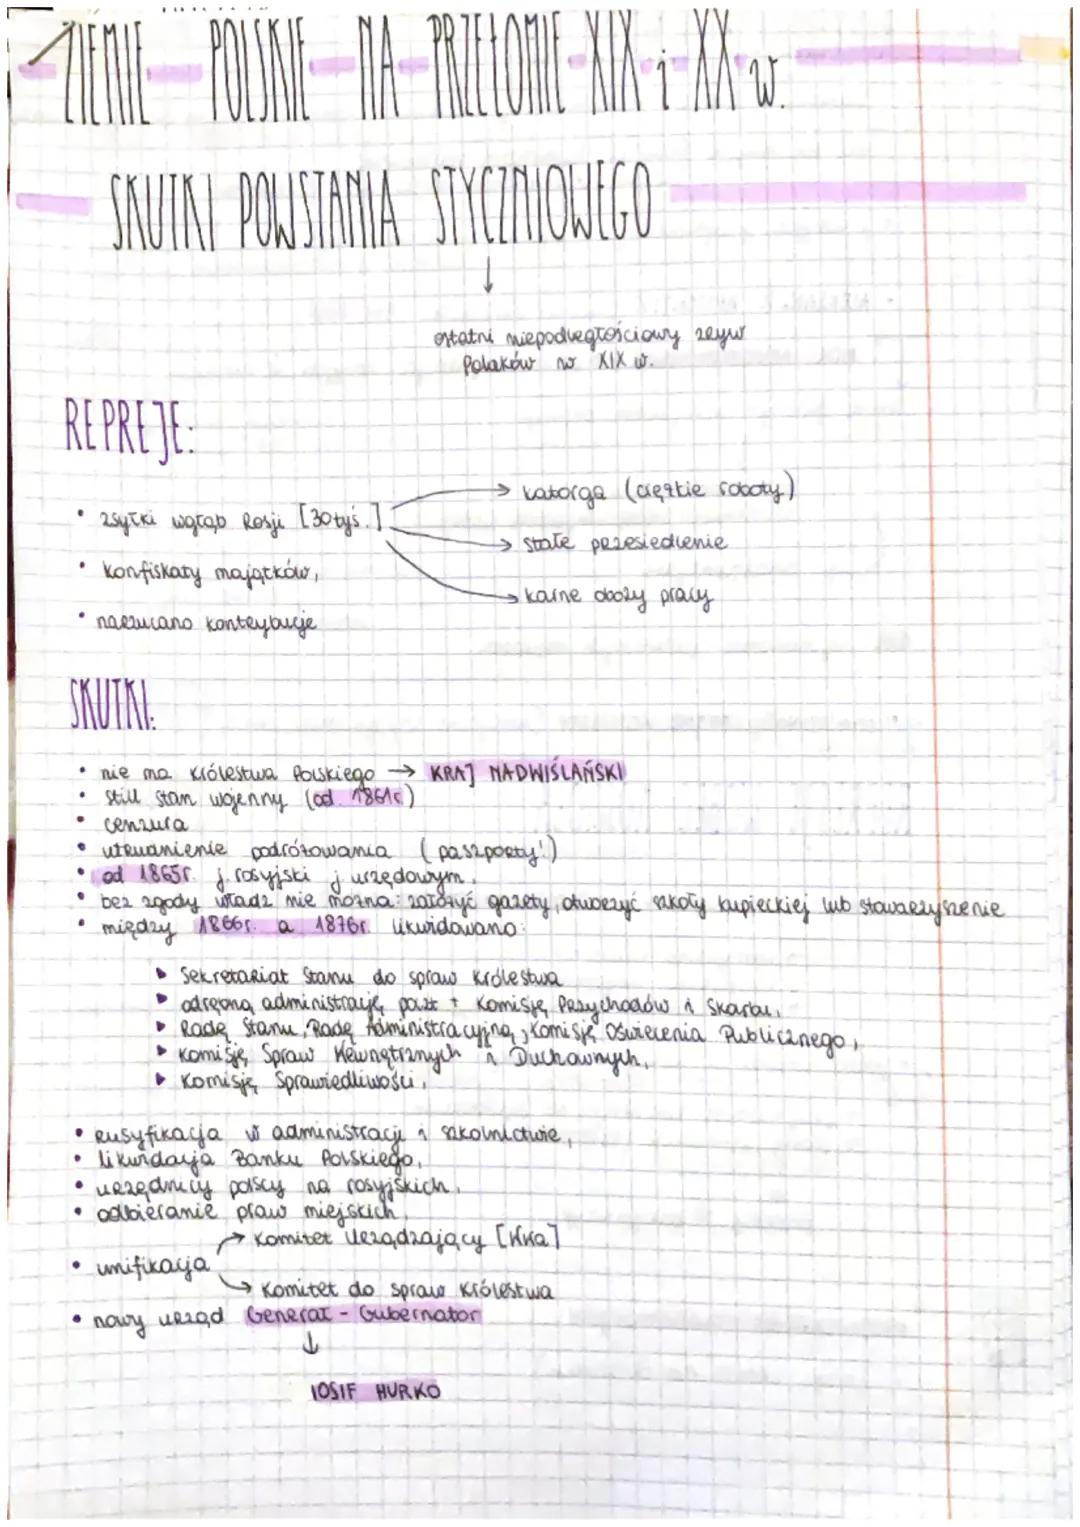 ZIEMIE POLSKIE NA PRZEŁOMIE XIX i XX w.
SKUTKI POWSTANIA STYCZNIOWEGO
↓
ostatni niepodległościowy zryw
Polaków w XIX w.
REPREJE:
• zsyłki wgłąb Rosji [30 tyś.] → katorga (ciężkie roboty)
→ stałe przesiedlenie
→ karne obozy pracy
• konfiskaty majątków,
• narzucano kontrybucje
SKUTKI:
• nie ma Królestwa Polskiego → KRAJ NADWIŚLAŃSKI
• still stan wojenny (od 1861r.)
• cenzura
• utrudnienie podróżowania (paszporty!)
• od 1865r. j. rosyjski j. urzędowym.
• bez zgody władz nie można: założyć gazety, otworzyć szkoły kupieckiej lub stowarzyszenie
• między 1866r. a 1876r. likwidowano:
▶ Sekretariat Stanu do spraw Królestwa
▶ odrębną administrację poczt + Komisję Przychodów i Skarbu,
▶ Radę Stanu, Radę Administracyjną, Komisję Oświecenia Publicznego,
▶ Komisję Spraw Wewnątrznych i Duchownych,
▶ Komisję Sprawiedliwości,
• rusyfikacja w administracji i szkolnictwie,
• likwidacja Banku Polskiego,
• urzędnicy polscy na rosyjskich,
• odbieranie praw miejskich,
→ Komitet Urządzający [WKa]
• unifikacja
→ Komitet do spraw Królestwa
• nowy urząd Generał - Gubernator
↓
IOSIF HURKO